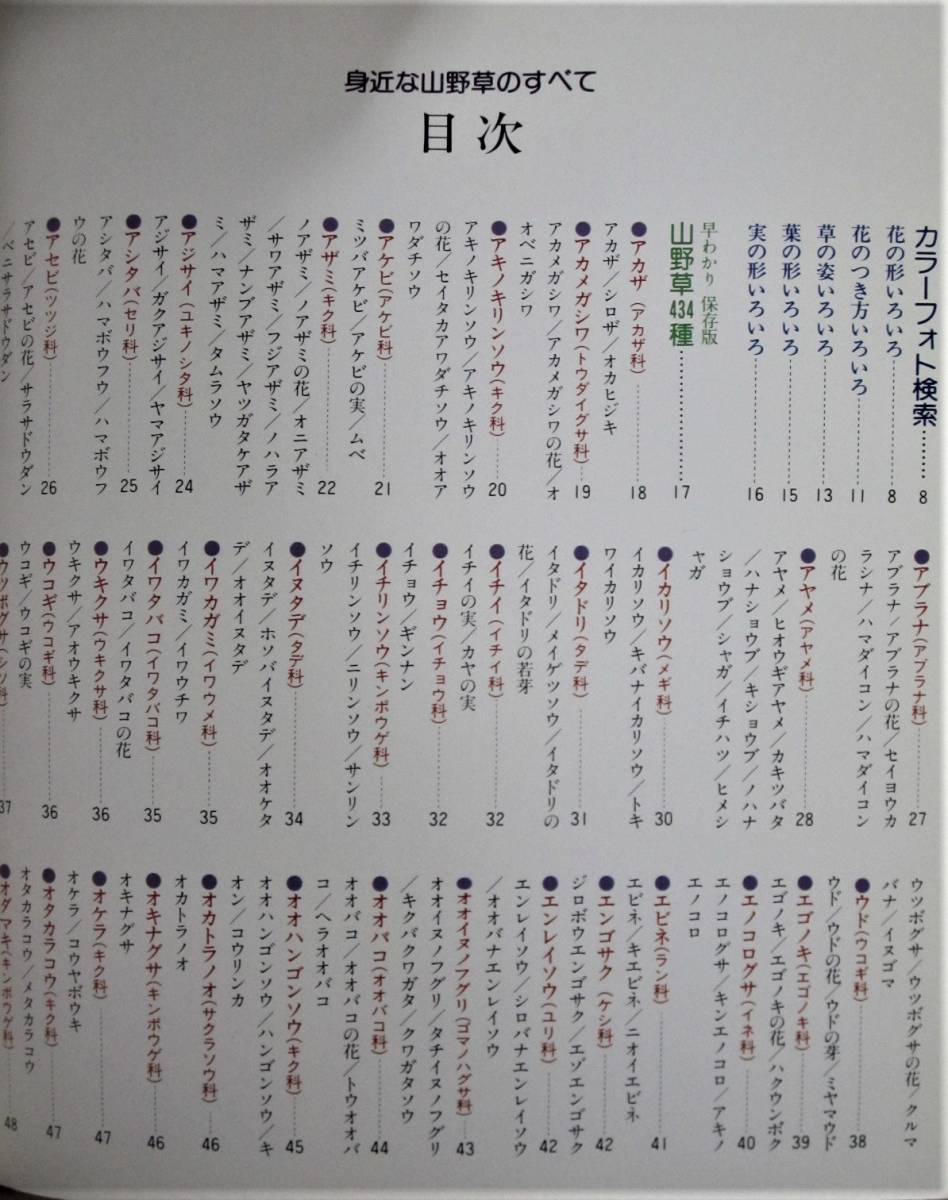 身近な山野草のすべて
目次
カラーフォト検索………8
花の形いろいろ………8
花のつき方いろいろ………11
草の姿いろいろ………13
葉の形いろいろ………15
実の形いろいろ………16
早わかり 保存版
山野草434種………17
●アカザ(アカザ科)………18
アカザ／シロザ／オカヒジキ
●アカメガシワ(トウダイグサ科)………19
アカメガシワ／アカメガシワの花／オ
オベニガシワ
●アキノキリンソウ(キク科)………20
アキノキリンソウ／アキノキリンソウ
の花／セイタカアワダチソウ／オオア
ワダチソウ
●アケビ(アケビ科)………21
ミツバアケビ／アケビの実／ムベ
●アザミ(キク科)………22
ノアザミ／ノアザミの花／オニアザミ
／サワアザミ／フジアザミ／ノハラア
ザミ／ナンブアザミ／ヤツガタケアザ
ミ／ハマアザミ／タムラソウ
●アジサイ(ユキノシタ科)………24
アジサイ／ガクアジサイ／ヤマアジサイ
●アシタバ(セリ科)………25
アシタバ／ハマボウフウ／ハマボウフ
ウの花
●アセビ(ツツジ科)………26
アセビ／アセビの花／サラサドウダン
／ベニサラサドウダン
●アブラナ(アブラナ科)………27
アブラナ／アブラナの花／セイヨウカ
ラシナ／ハマダイコン／ハマダイコン
の花
●アヤメ(アヤメ科)………28
アヤメ／ヒオウギアヤメ／カキツバタ
／ハナショウブ／キショウブ／ノハナ
ショウブ／シャガ／イチハツ／ヒメシ
ャガ
●イカリソウ(メギ科)………30
イカリソウ／キバナイカリソウ／トキ
ワイカリソウ
●イタドリ(タデ科)………31
イタドリ／メイゲツソウ／イタドリの
花／イタドリの若芽
●イチイ(イチイ科)………32
イチイの実／カヤの実
●イチョウ(イチョウ科)………32
イチョウ／ギンナン
●イチリンソウ(キンポウゲ科)………33
イチリンソウ／ニリンソウ／サンリン
ソウ
●イヌタデ(タデ科)………34
イヌタデ／ホソバイヌタデ／オオケタ
デ／オオイヌタデ
●イワカガミ(イワウメ科)………35
イワカガミ／イワウチワ
●イワタバコ(イワタバコ科)………35
イワタバコ／イワタバコの花
●ウキクサ(ウキクサ科)………36
ウキクサ／アオウキクサ
●ウコギ(ウコギ科)………36
ウコギ／ウコギの実
●ウツボグサ(シソ科)………37
ウツボグサ／ウツボグサの花／クルマ
バナ／イヌゴマ
●ウド(ウコギ科)………38
ウド／ウドの花／ウドの芽／ミヤマウド
●エゴノキ(エゴノキ科)………39
エゴノキ／エゴノキの花／ハクウンボク
●エノコログサ(イネ科)………40
エノコログサ／キンエノコロ／アキノ
エノコロ
●エビネ(ラン科)………41
エビネ／キエビネ／ニオイエビネ
●エンゴサク(ケシ科)………42
ジロボウエンゴサク／エゾエンゴサク
●エンレイソウ(ユリ科)………42
エンレイソウ／シロバナエンレイソウ
／オオバナエンレイソウ
●オオイヌノフグリ(ゴマノハグサ科)………43
オオイヌノフグリ／タチイヌノフグリ
／キクバクワガタ／クワガタソウ
●オオバコ(オオバコ科)………44
オオバコ／オオバコの花／トウオオバ
コ／ヘラオオバコ
●オオハンゴンソウ(キク科)………45
オオハンゴンソウ／ハンゴンソウ／キ
オン／コウリンカ
●オカトラノオ(サクラソウ科)………46
オカトラノオ
●オキナグサ(キンポウゲ科)………46
オキナグサ
●オケラ(キク科)………47
オケラ／コウヤボウキ
●オタカラコウ(キク科)………47
オタカラコウ／メタカラコウ
●オダマキ(キンポウゲ科)………48